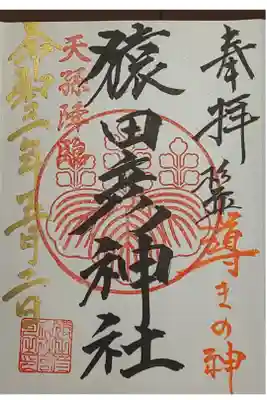 奉拝
導きの神
猿田彦神社
天孫降臨
令和三年五月二日